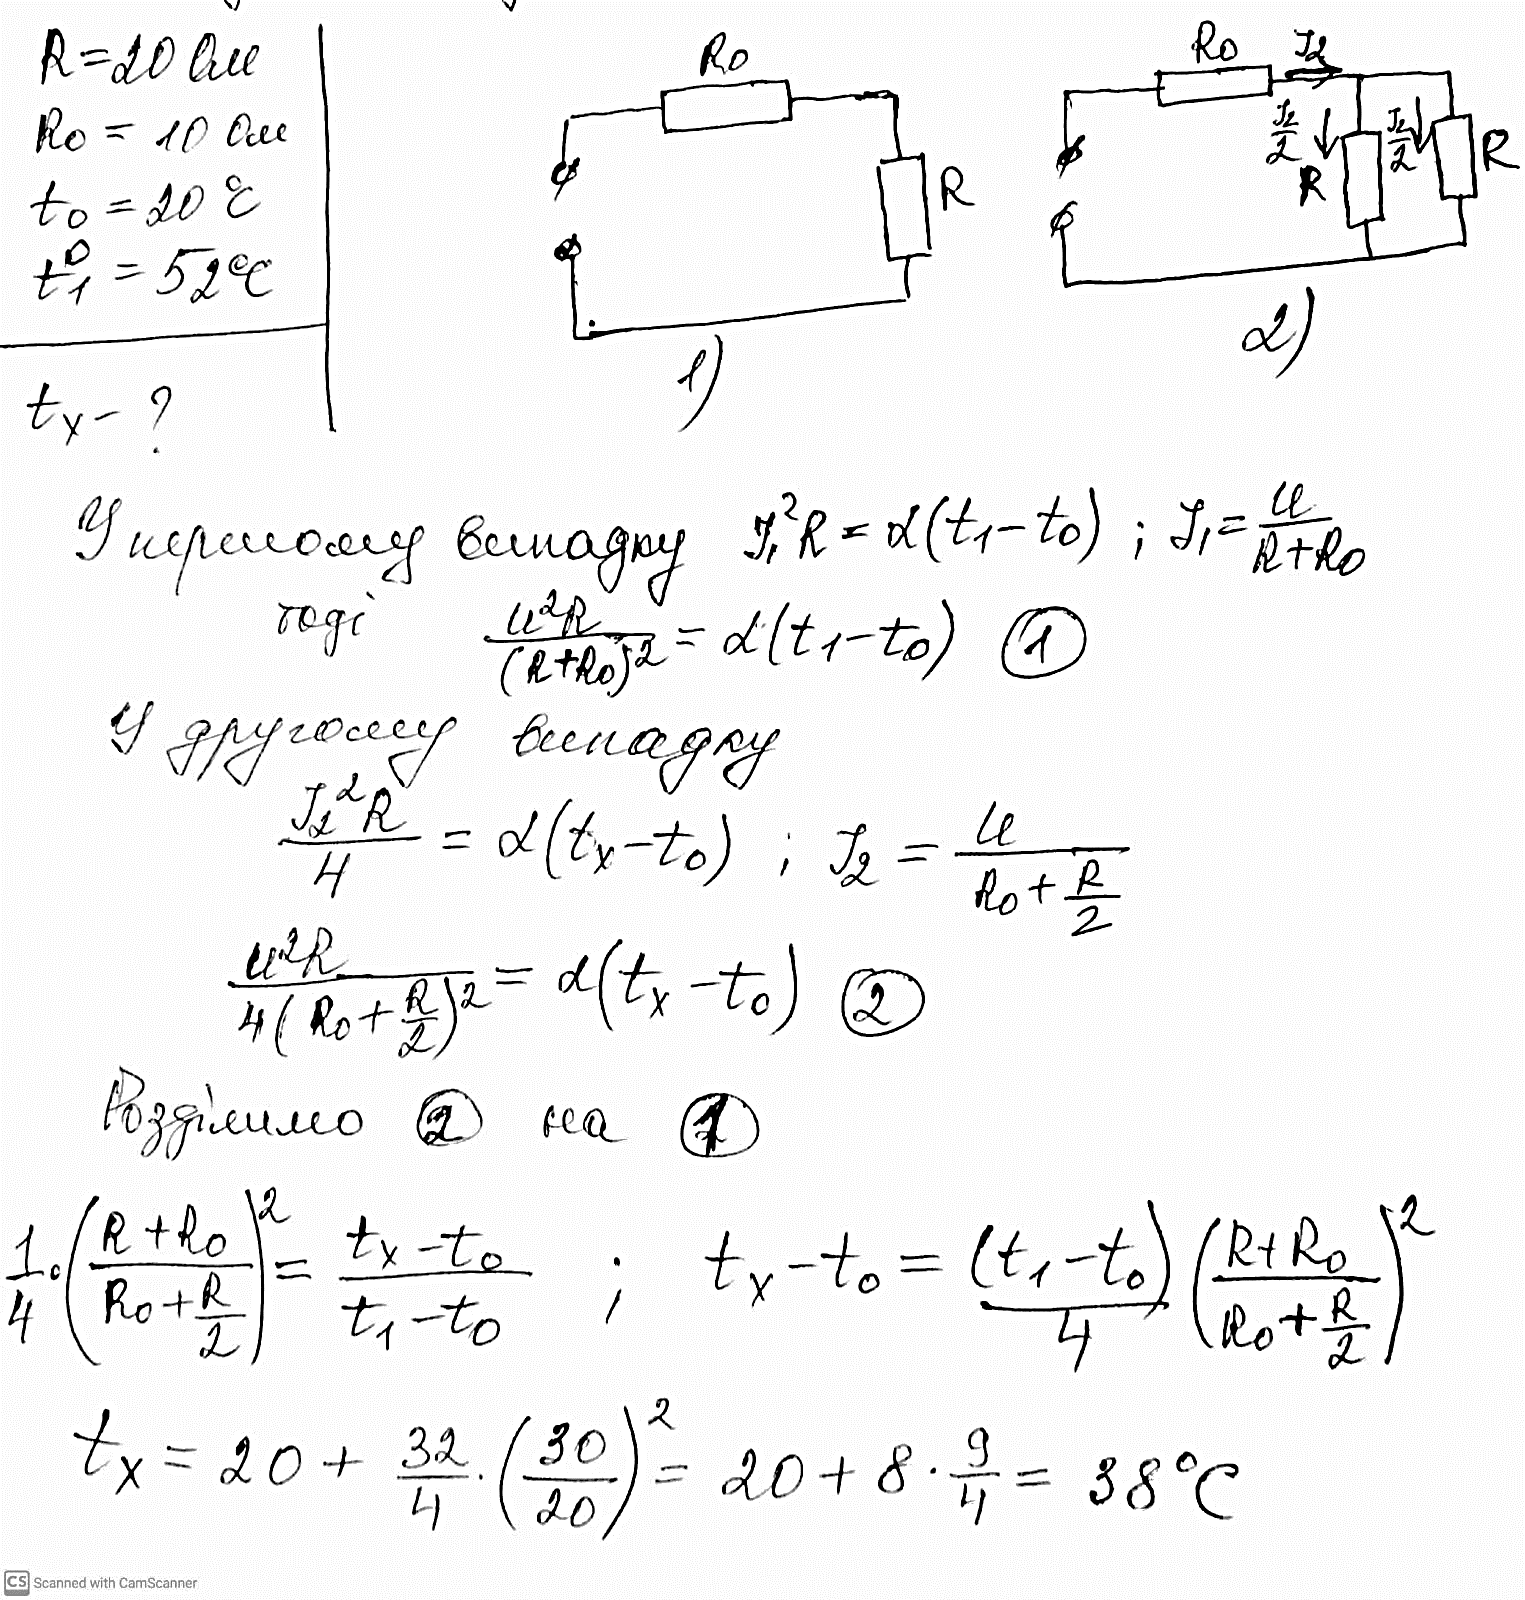 R = 20 Ом
R₀ = 10 Ом
t₀ = 20 °C
t₁⁰ = 52 °C
tₓ - ?
R₀
R
1)
R₀ J₂
J₂/2 J₂/2
R R
2)
У першому випадку J₁²R = α(t₁ - t₀) ; J₁ = U/(R+R₀)
тоді U²R/(R+R₀)² = α(t₁ - t₀) ①
У другому випадку
J₂²R/4 = α(tₓ - t₀) ; J₂ = U/(R₀ + R/2)
U²R/4(R₀ + R/2)² = α(tₓ - t₀) ②
Розділимо ② на ①
1/4 · ((R + R₀)/(R₀ + R/2))² = (tₓ - t₀)/(t₁ - t₀) ; tₓ - t₀ = (t₁ - t₀)/4 ((R + R₀)/(R₀ + R/2))²
tₓ = 20 + 32/4 · (30/20)² = 20 + 8 · 9/4 = 38 °C
CS Scanned with CamScanner